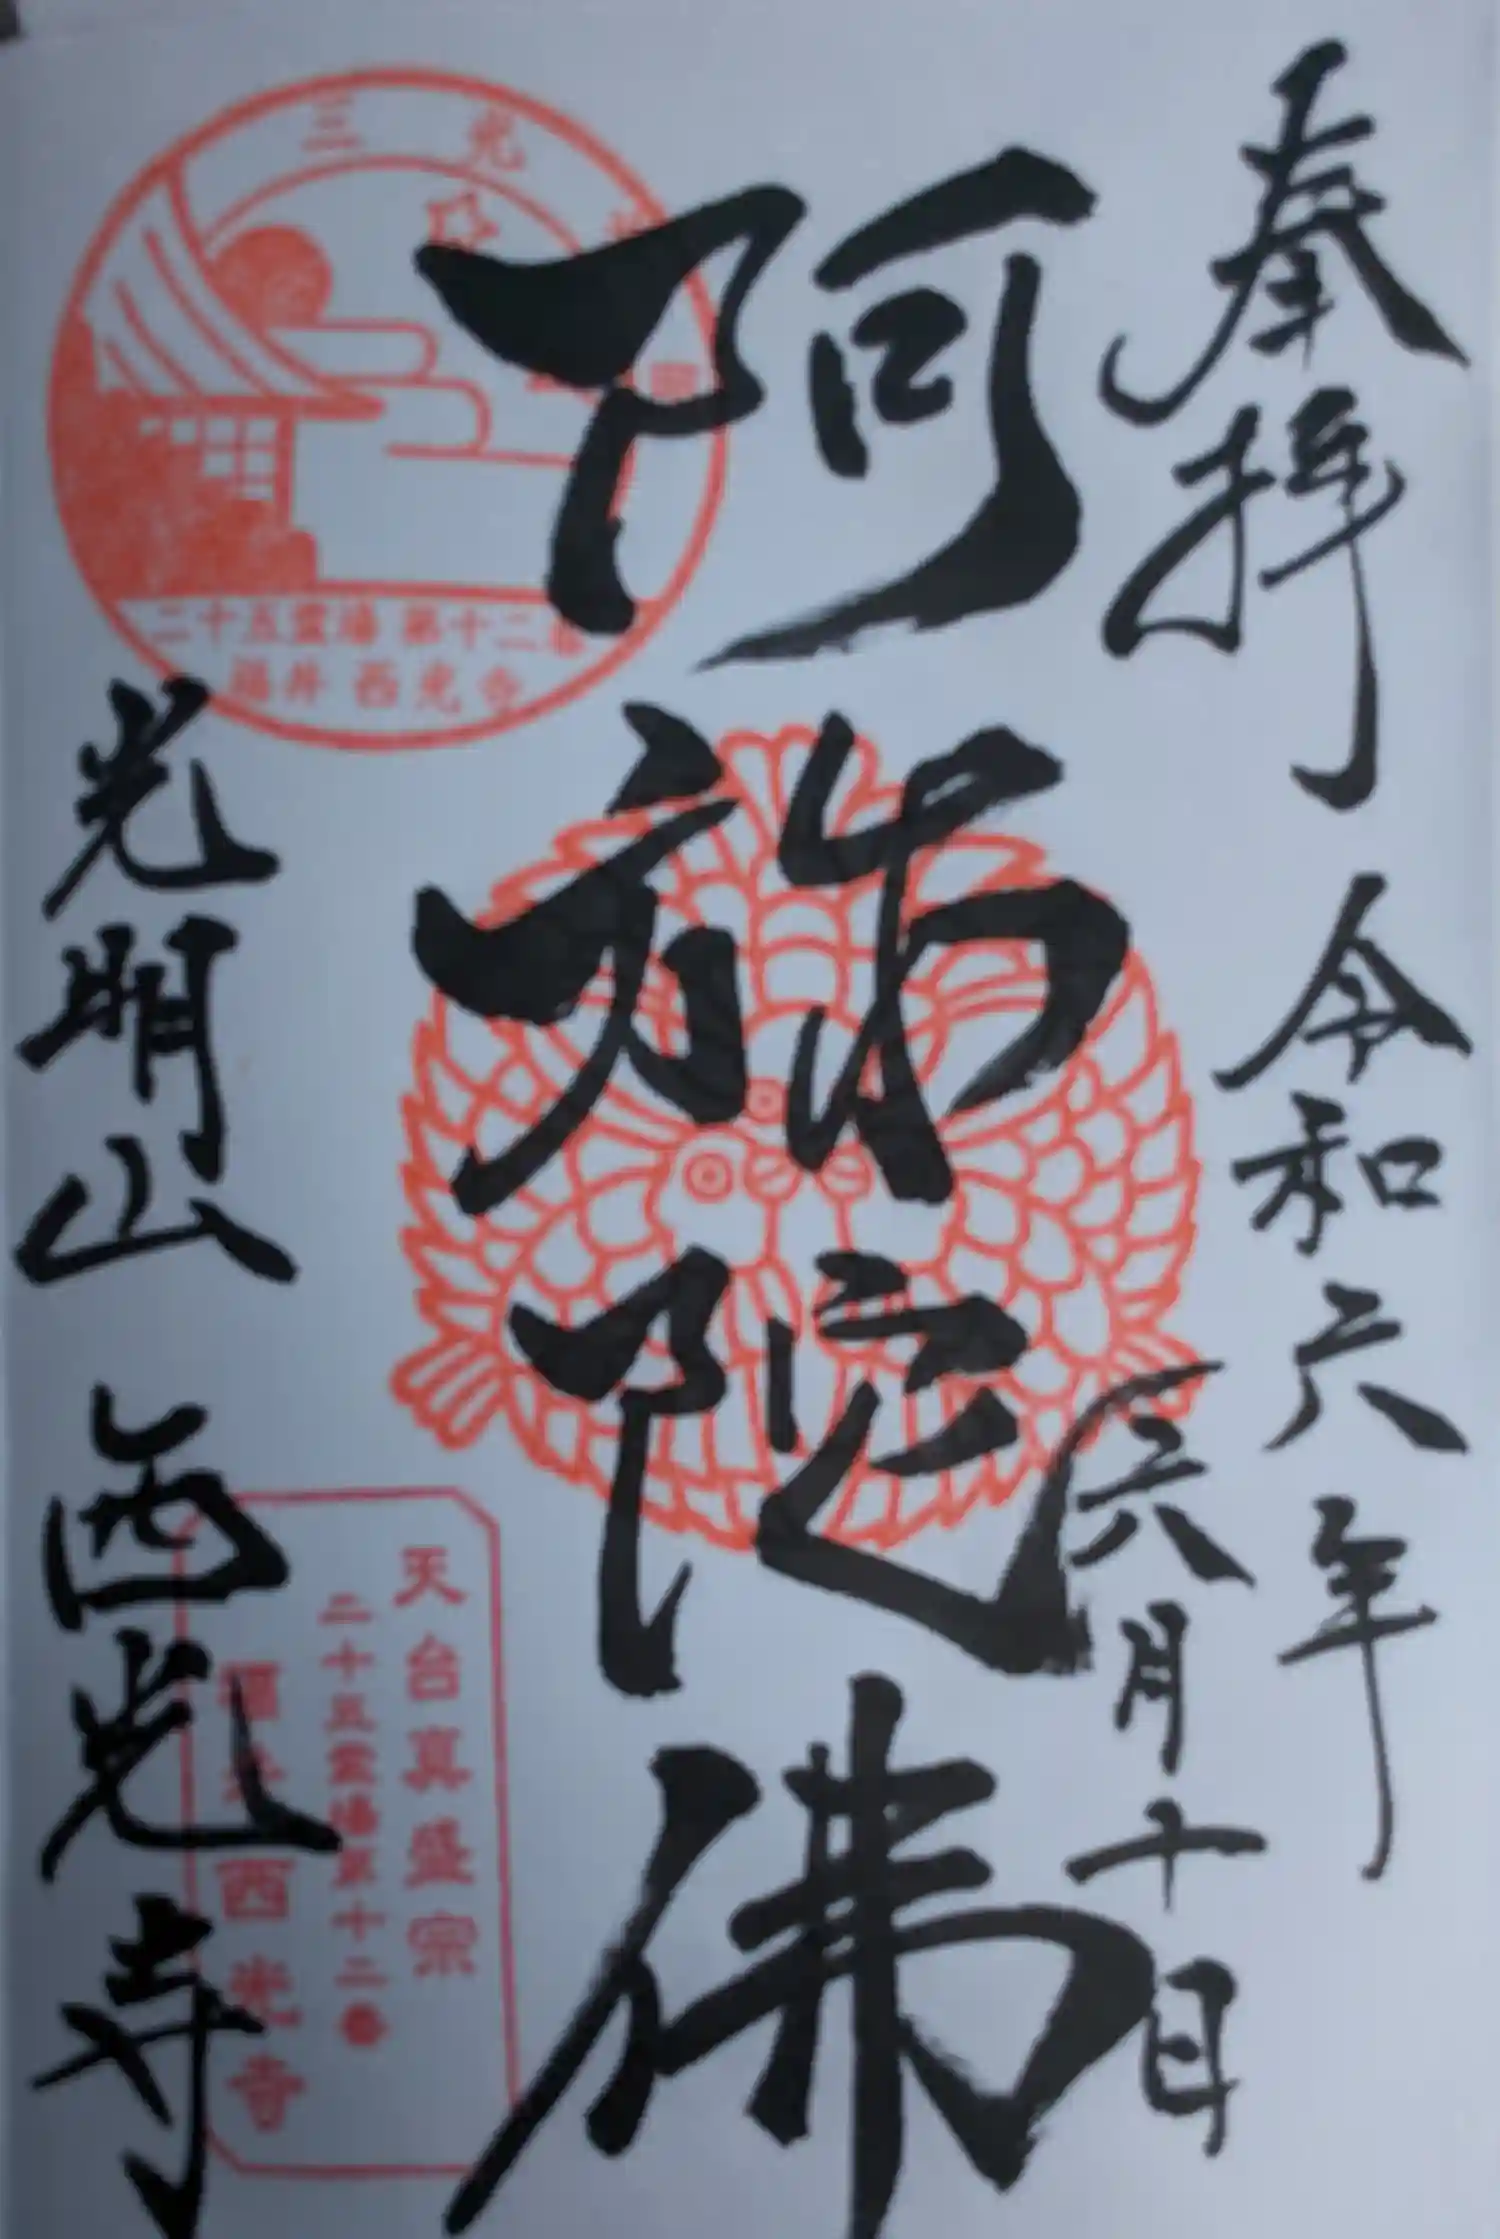 奉拝 令和六年
六月十日
阿弥陀佛
光明山 西光寺
三光
二十五霊場 第十二番
福井 西光寺
天台真盛宗
二十五霊場第十二番
福井 西光寺